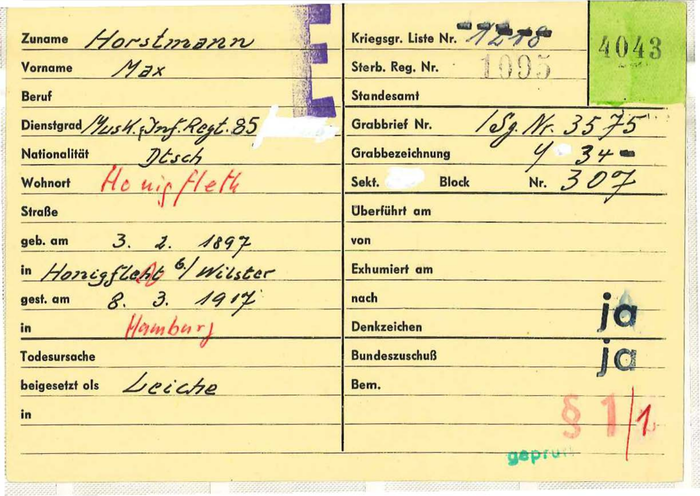 Zuname Horstmann
Vorname Max
Beruf
Dienstgrad Musk. Inf. Regt. 85
Nationalität Dtsch
Wohnort Honigfleth
Straße
geb. am 3. 2. 1897
in Honigfleht b/Wilster
gest. am 8. 3. 1917
in Hamburg
Todesursache
beigesetzt als Leiche
in
Kriegsgr. Liste Nr. 1218
Sterb. Reg. Nr. 1095
Standesamt
4043
Grabbrief Nr. ISg. Nr. 3575
Grabbezeichnung Y 34-
Sekt. Block Nr. 307
Überführt am
von
Exhumiert am
nach
Denkzeichen ja
Bundeszuschuß ja
Bem.
§ 1/1
geprüft